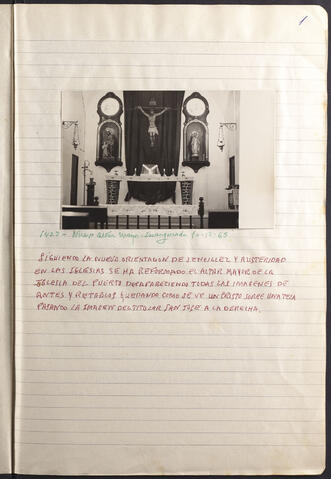 1
1427 - Nuevo Altar Mayor. Inaugurado 10-12-65
SIGUIENDO LA NUEVA ORIENTACION DE SENCILLEZ Y AUSTERIDAD
EN LAS IGLESIAS SE HA REFORMADO EL ALTAR MAYOR DE LA
IGLESIA DEL PUERTO DESAPARECIENDO TODAS LAS IMAGENES DE
ANTES Y RETABLOS QUEDANDO COMO SE VE UN CRISTO SOBRE UNA TELA
PASANDO LA IMAGEN DEL TITULAR SAN JOSE A LA DERECHA.